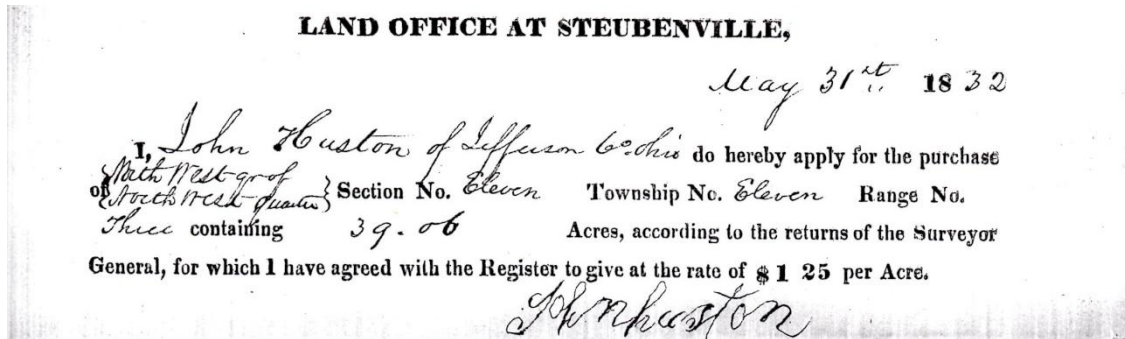 LAND OFFICE AT STEUBENVILLE,
May 31st 1832
I, John Huston of Jefferson Co. Ohio do hereby apply for the purchase
of {North West qr of
North West quarter} Section No. Eleven Township No. Eleven Range No.
Three containing 39.06 Acres, according to the returns of the Surveyor
General, for which I have agreed with the Register to give at the rate of $1 25 per Acre.
John huston